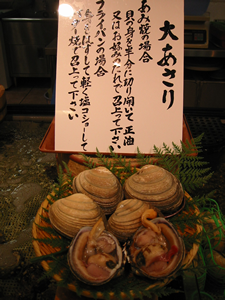 大あさり
あみ焼の場合
貝の身を半分に切り開いて正油
又はお好みのたれで召上って下さい
フライパンの場合
してして軽く塩コショーして
バター焼で召上って下さい